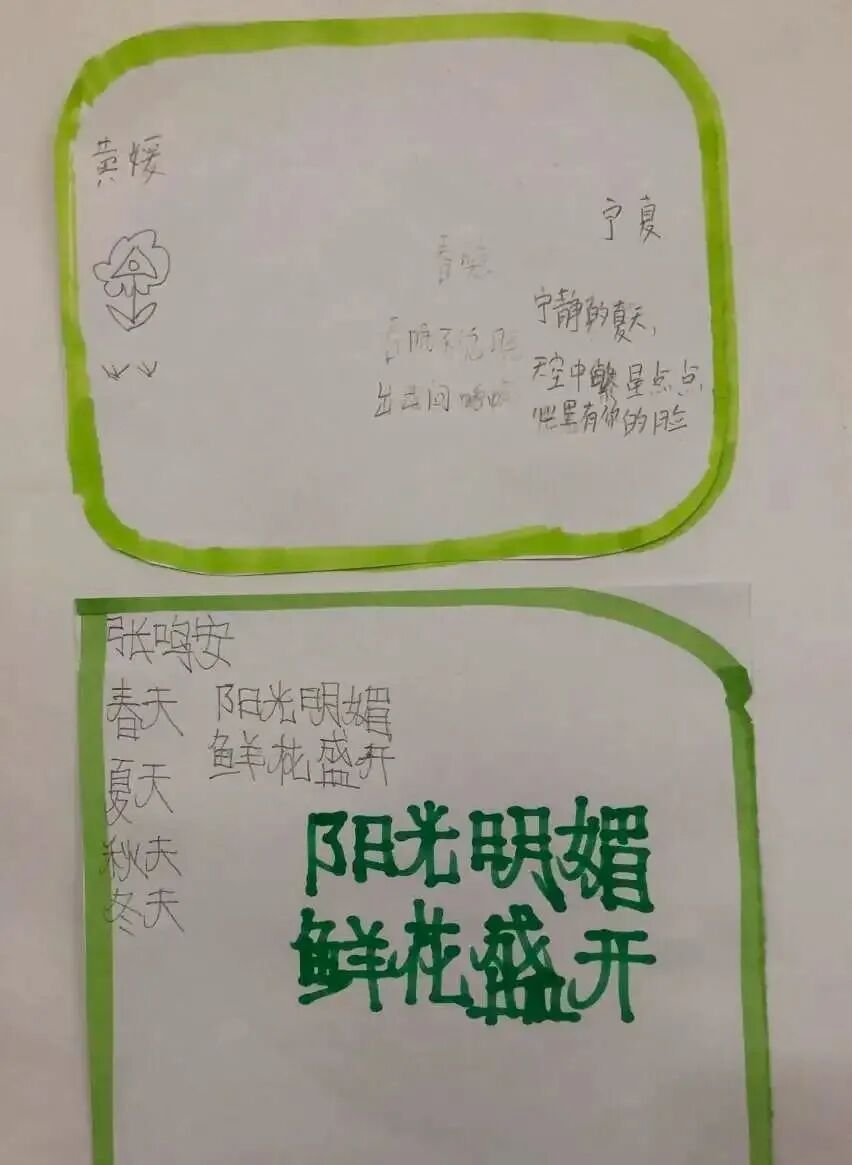 黄媛
宁夏
宁静的夏天，
天空中繁星点点
心里有你的脸
春晓
春眠不觉晓
张鸣安
春天 阳光明媚
鲜花盛开
夏天
秋天
冬天
阳光明媚
鲜花盛开